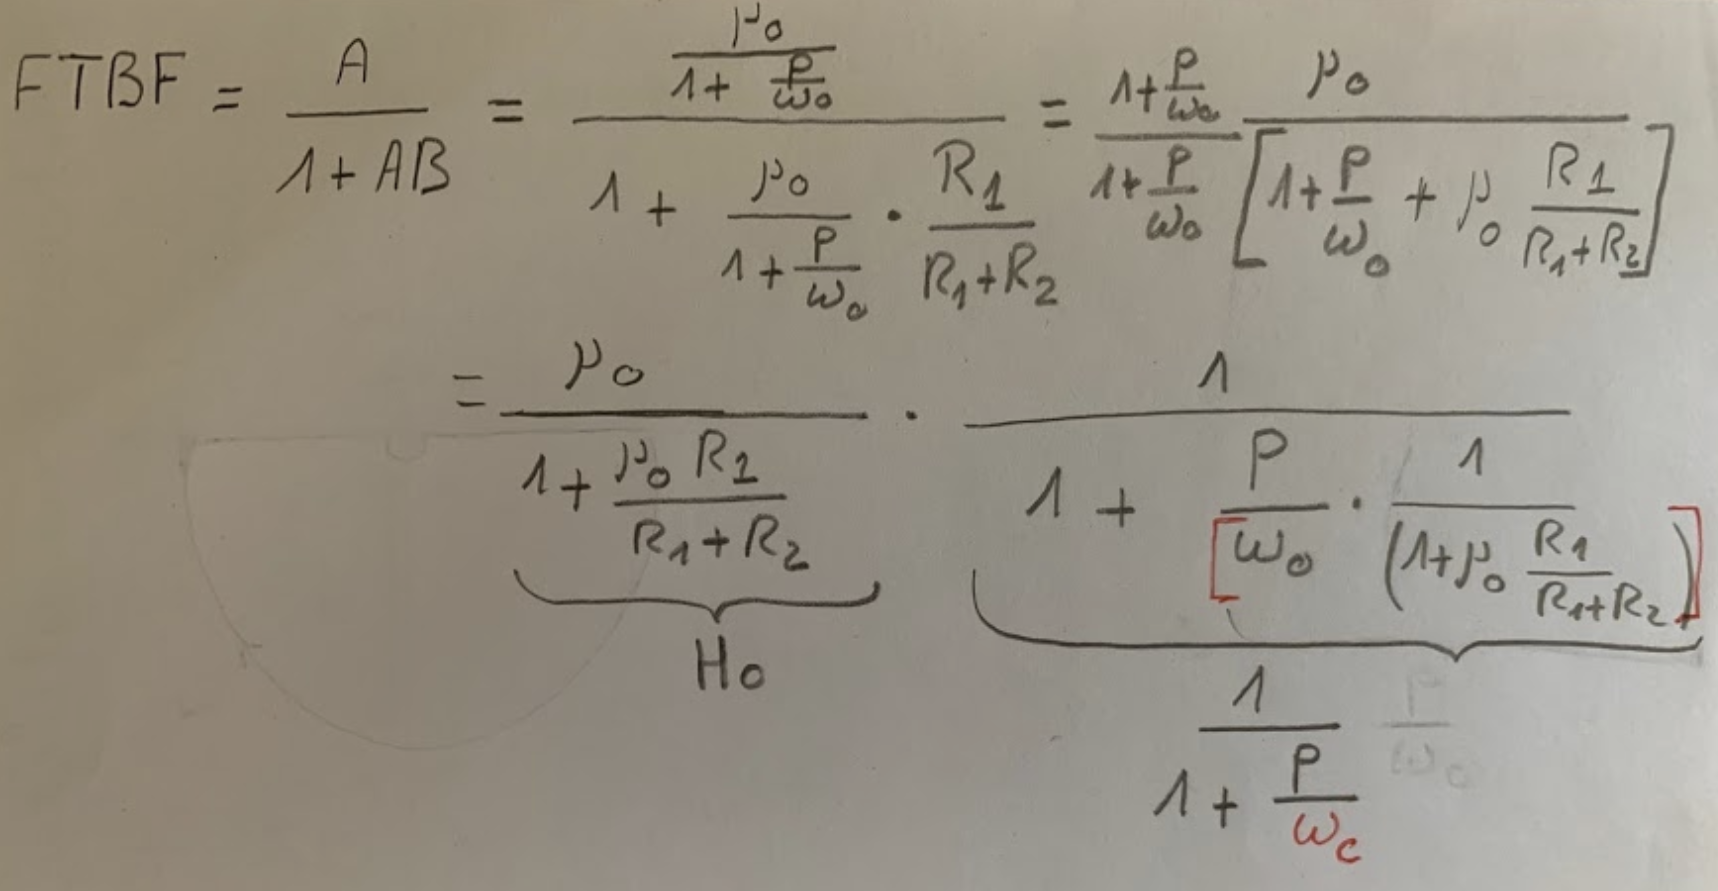 FTBF = \frac{A}{1 + AB} = \frac{\frac{μ_0}{1 + \frac{P}{ω_0}}}{1 + \frac{μ_0}{1 + \frac{P}{ω_0}} \cdot \frac{R_1}{R_1 + R_2}} = \frac{1 + \frac{P}{ω_0}}{1 + \frac{P}{ω_0}} \frac{μ_0}{\left[1 + \frac{P}{ω_0} + μ_0 \frac{R_1}{R_1 + R_2}\right]}
= \frac{μ_0}{1 + \frac{μ_0 R_1}{R_1 + R_2}} \cdot \frac{1}{1 + \frac{P}{[ω_0} \cdot \frac{1}{(1 + μ_0 \frac{R_1}{R_1 + R_2})]}}
H_0
\frac{1}{1 + \frac{P}{ω_c}}